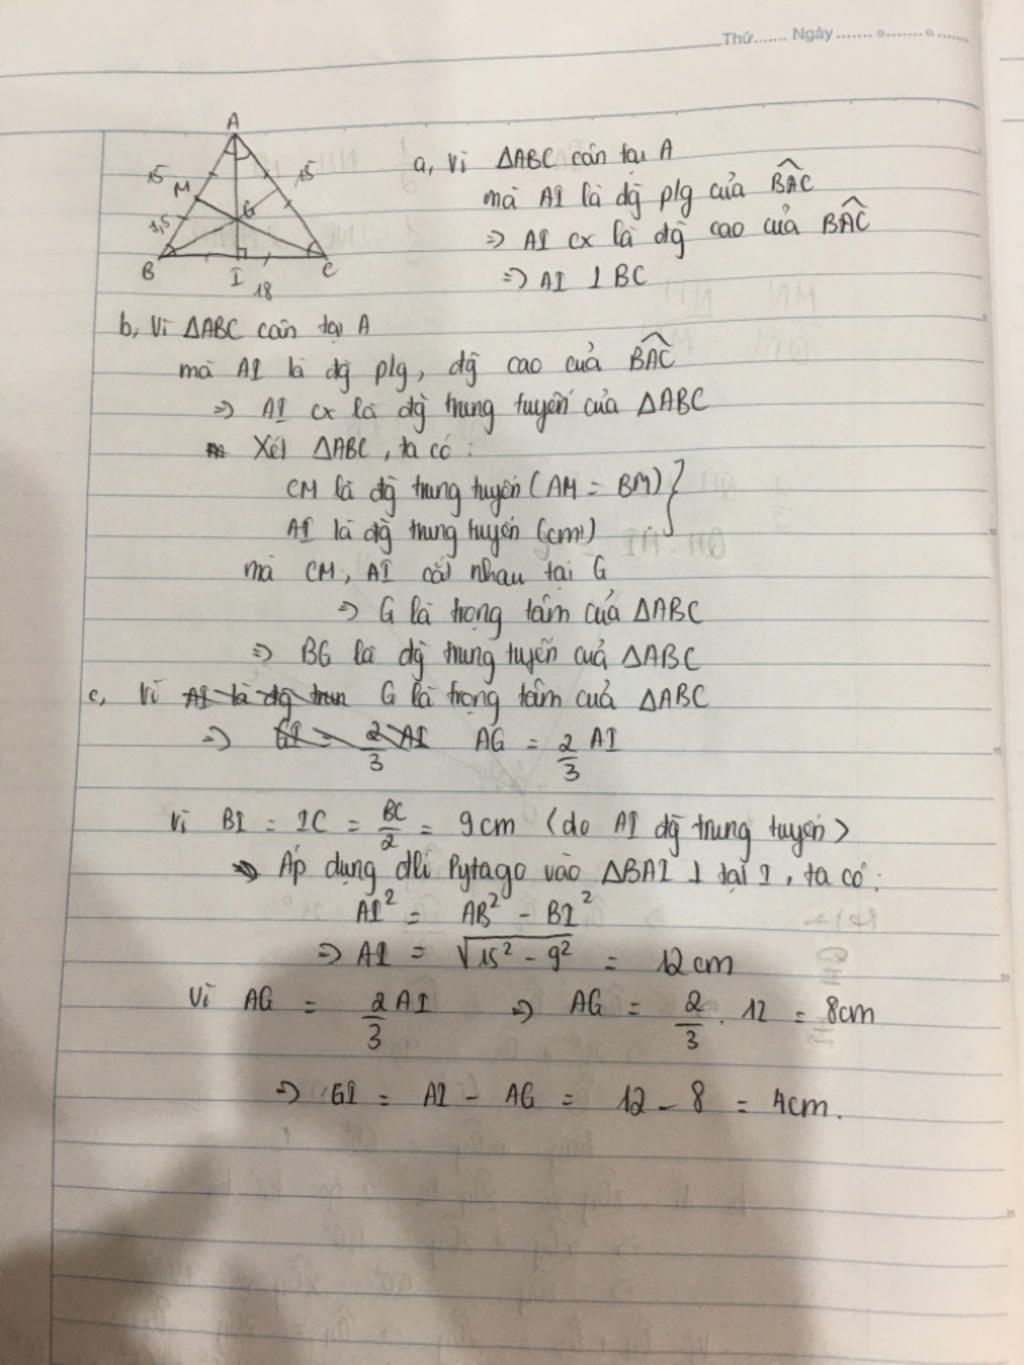 Thứ....... Ngày ....... o ....... o .......
A
15
15
M
7,5
G
B
I
C
18
a, Vì ΔABC cân tại A
mà AI là đg plg của BAC
=> AI cx là đg cao của BAC
=> AI ⊥ BC
b, Vì ΔABC cân tại A
mà AI là đg plg, đg cao của BAC
=> AI cx là đg trung tuyến của ΔABC
Xét ΔABC, ta có :
CM là đg trung tuyến (AM = BM) }
AI là đg trung tuyến (cmt)
mà CM, AI cắt nhau tại G
=> G là trọng tâm của ΔABC
=> BG là đg trung tuyến của ΔABC
c, Vì AI là đg trun G là trọng tâm của ΔABC
=> GI = 2/3 AI AG = 2/3 AI
Vì BI = IC = BC/2 = 9cm (do AI đg trung tuyến)
=> Áp dụng đlí Pytago vào ΔBAI ⊥ tại I, ta có :
AI² = AB² - BI²
=> AI = √15² - 9² = 12cm
Vì AG = 2/3 AI => AG = 2/3 . 12 = 8cm
=> GI = AI - AG = 12 - 8 = 4cm.